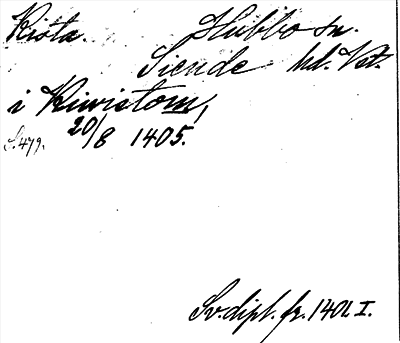 Kista. Hubbo sn.
Siende hd. Vst.
i Kiwistom,
S. 479. 20/8 1405.
Sv. dipl. fr. 1401 I.